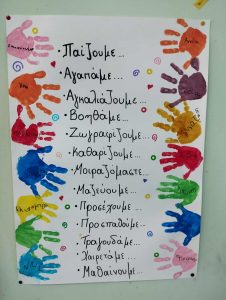 · Παίζουμε...
· Αγαπάμε...
· Αγκαλιάζουμε...
· Βοηθάμε...
· Ζωγραφίζουμε...
· Καθαρίζουμε...
· Μοιραζόμαστε...
· Μαζεύουμε...
· Προσέχουμε...
· Προσπαθούμε...
· Τραγουδάμε...
· Χαιρετάμε...
· Μαθαίνουμε...